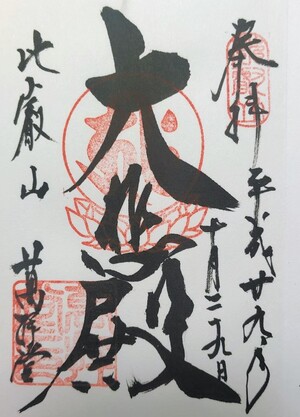 奉拝 平成廿九年
十月二九日
大悲殿
比叡山 萬拝堂